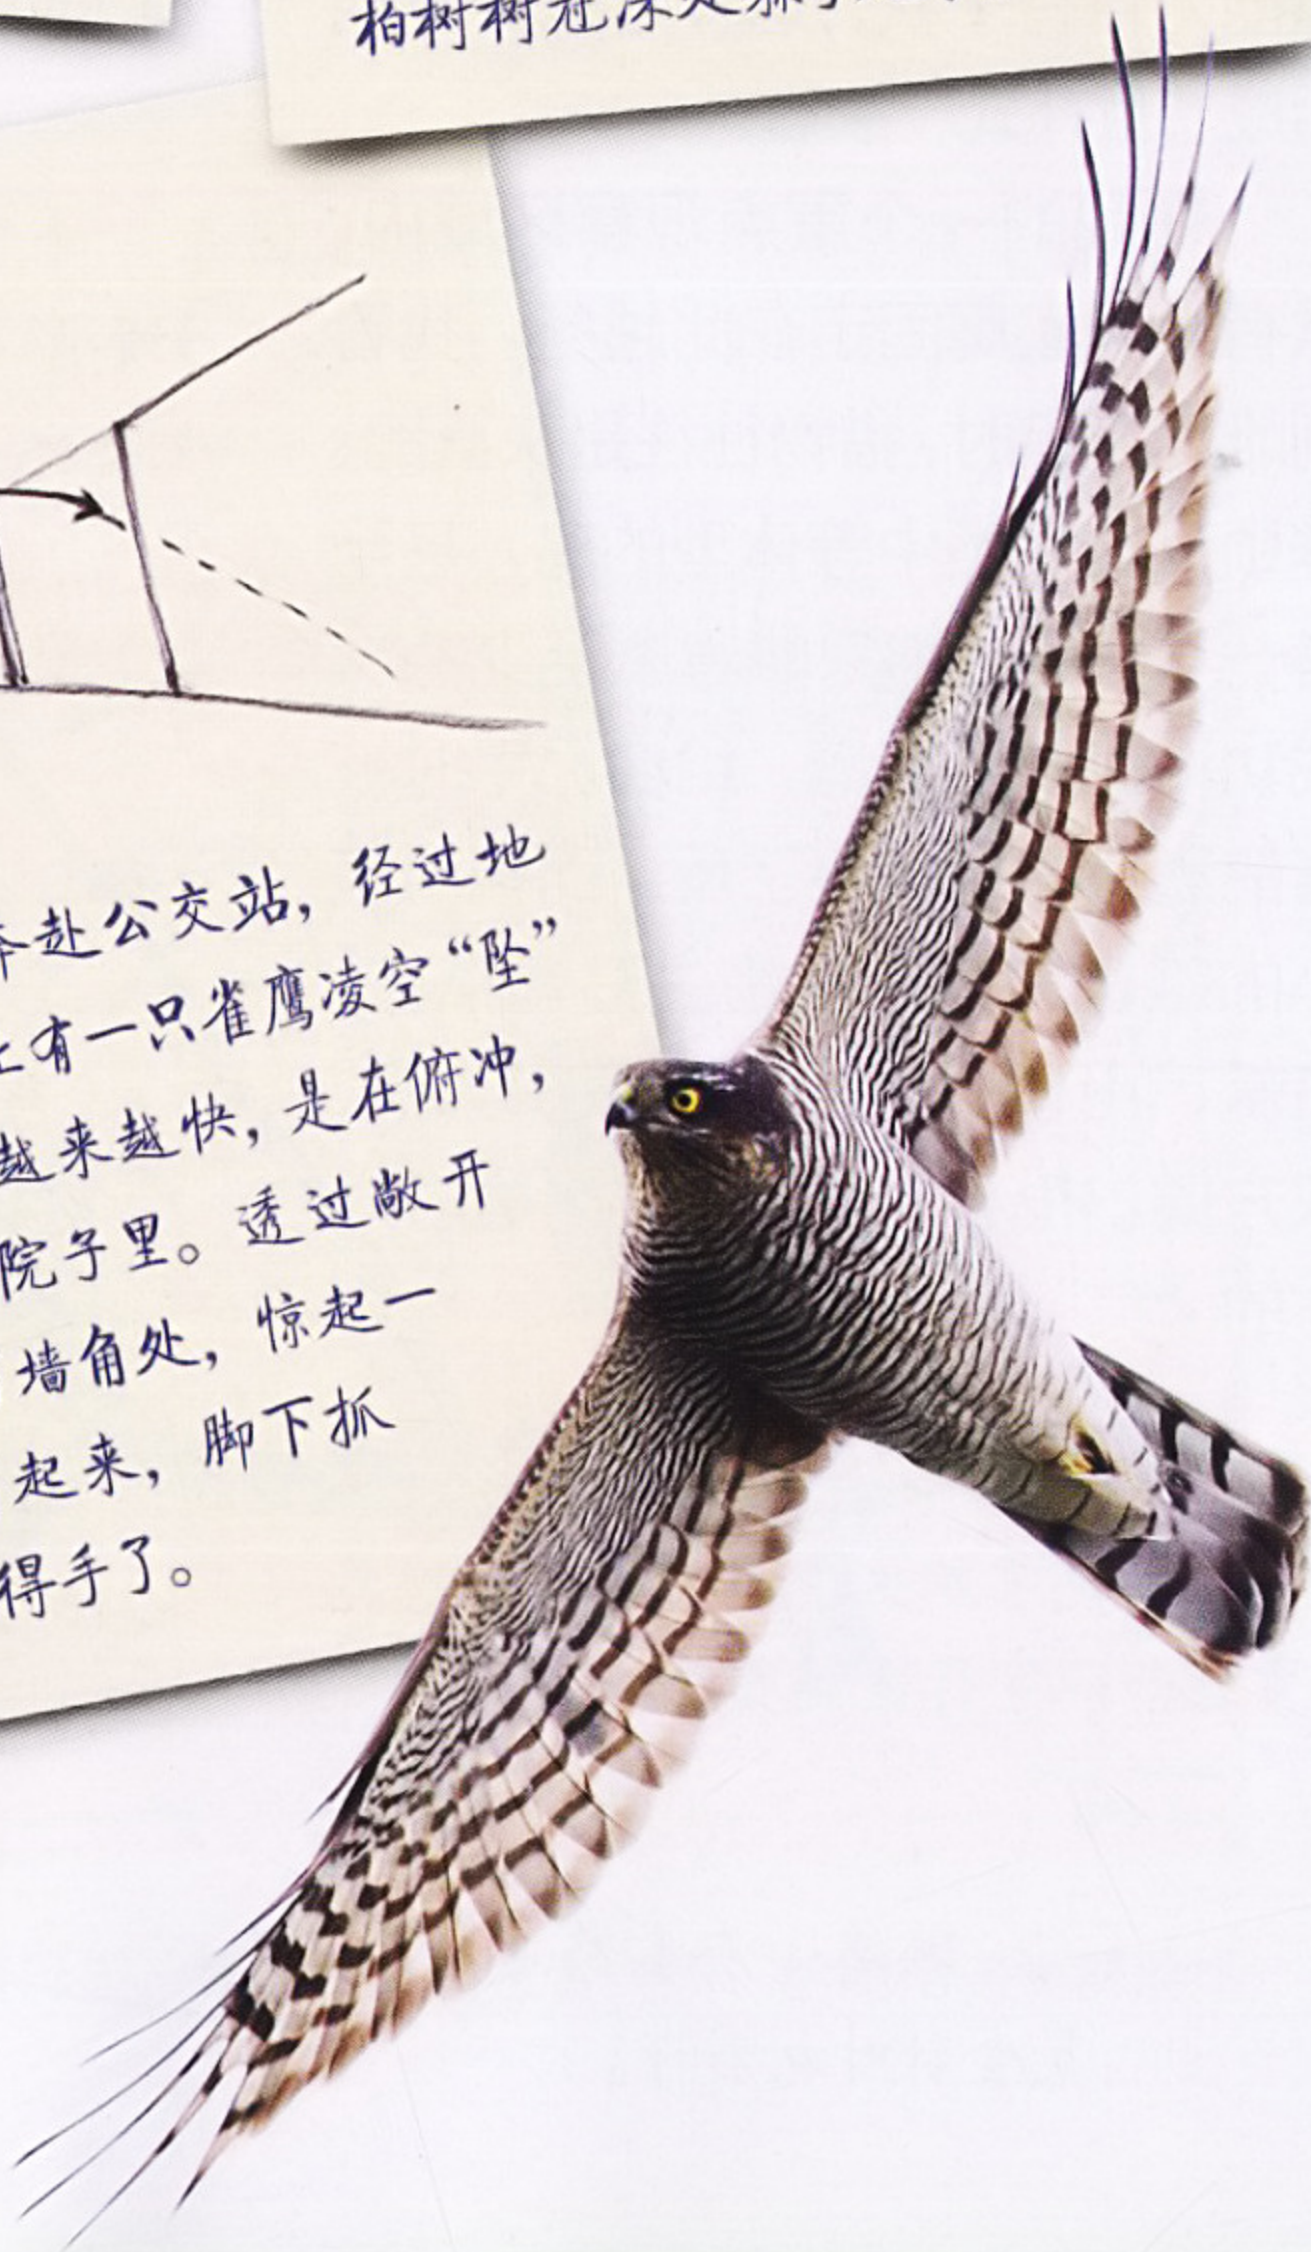 柏树树冠深处躲
赴公交站，经过地
有一只雀鹰凌空“坠”
越来越快，是在俯冲，
院子里。透过敞开
墙角处，惊起一
起来，脚下抓
得手了。